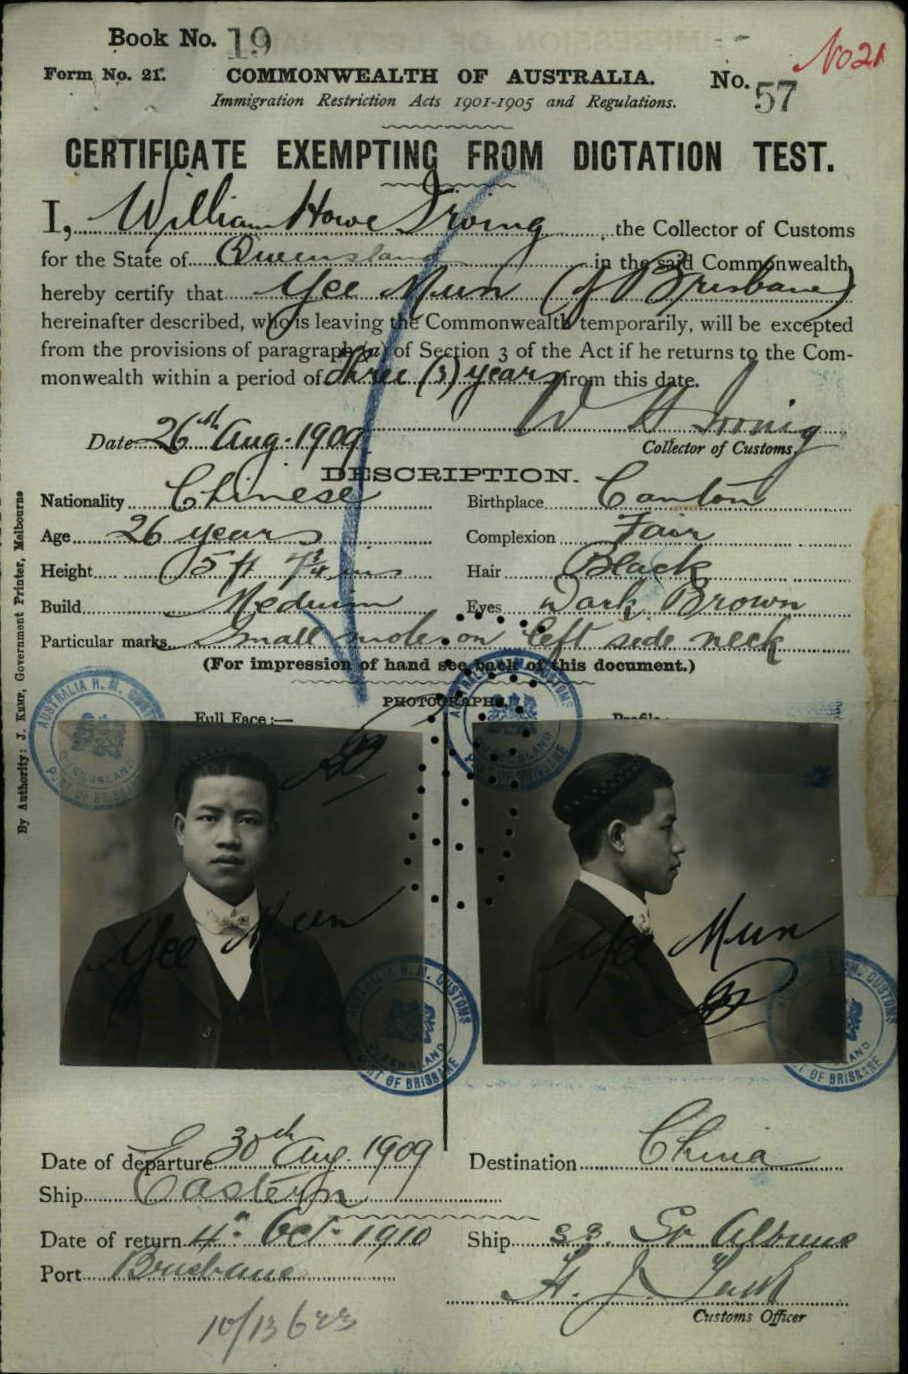 Book No. 19
No 21
Form No. 21. COMMONWEALTH OF AUSTRALIA. No. 57
Immigration Restriction Acts 1901-1905 and Regulations.
CERTIFICATE EXEMPTING FROM DICTATION TEST.
I, William Howe Irving, the Collector of Customs
for the State of Queensland in the said Commonwealth,
hereby certify that Yee Mun (of Brisbane)
hereinafter described, who is leaving the Commonwealth temporarily, will be excepted
from the provisions of paragraph (a) of Section 3 of the Act if he returns to the Com-
monwealth within a period of three (3) years from this date.
Date 26th Aug. 1909 W H Irving
Collector of Customs.
DESCRIPTION.
Nationality Chinese Birthplace Canton
Age 26 years Complexion Fair
Height 5 ft 7¾ ins Hair Black
Build Medium Eyes Dark Brown
Particular marks Small mole on left side neck
(For impression of hand see back of this document.)
PHOTOGRAPHS.
Full Face:— Profile:
AUSTRALIA H. M. CUSTOMS QUEENSLAND PORT OF BRISBANE
AUSTRALIA H. M. CUSTOMS QUEENSLAND PORT OF BRISBANE
Yee Mun
Yee Mun
AUSTRALIA H. M. CUSTOMS QUEENSLAND PORT OF BRISBANE
H. M. CUSTOMS LAND OF BRISBANE
Date of departure 30th Aug. 1909 Destination China
Ship Eastern
Date of return 4th Oct. 1910 Ship ss. St Albans
Port Brisbane H. J.
Customs Officer
10/13623
By Authority: J. Kemp, Government Printer, Melbourne